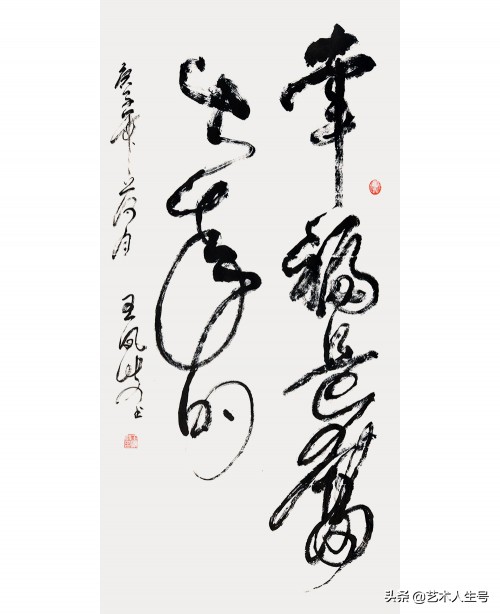 幸福是奮
出来的
庚子年之荷月 王凤
书
头条 @艺术人生号